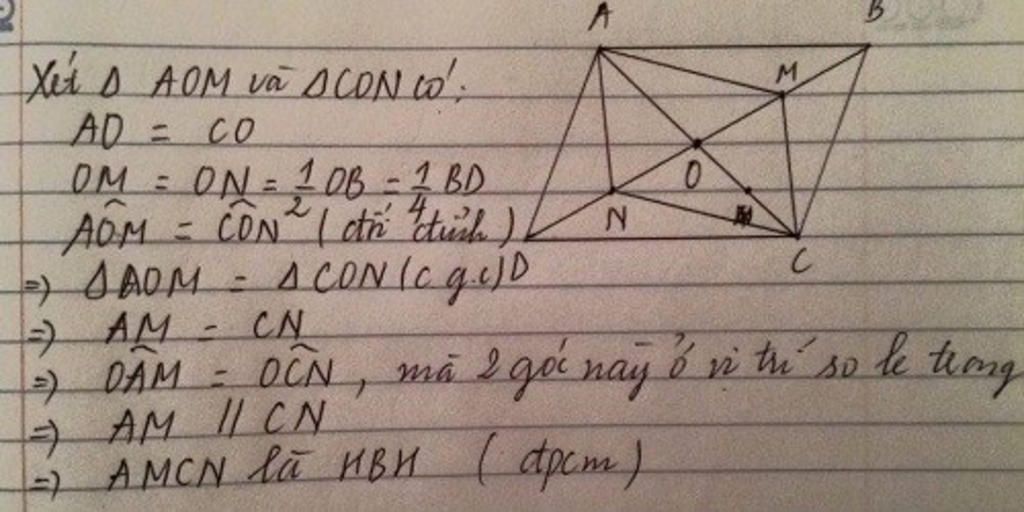 Xét Δ AOM và ΔCON có:
AO = CO
OM = ON = 1/2 OB = 1/4 BD
AÔM = CÔN (đối đỉnh)
=) ΔAOM = ΔCON (c.g.c)
=) AM = CN
=) OÂM = OĈN, mà 2 góc này ở vị trí so le trong
=) AM // CN
=) AMCN là HBH (đpcm)
A
B
M
O
N
D
C